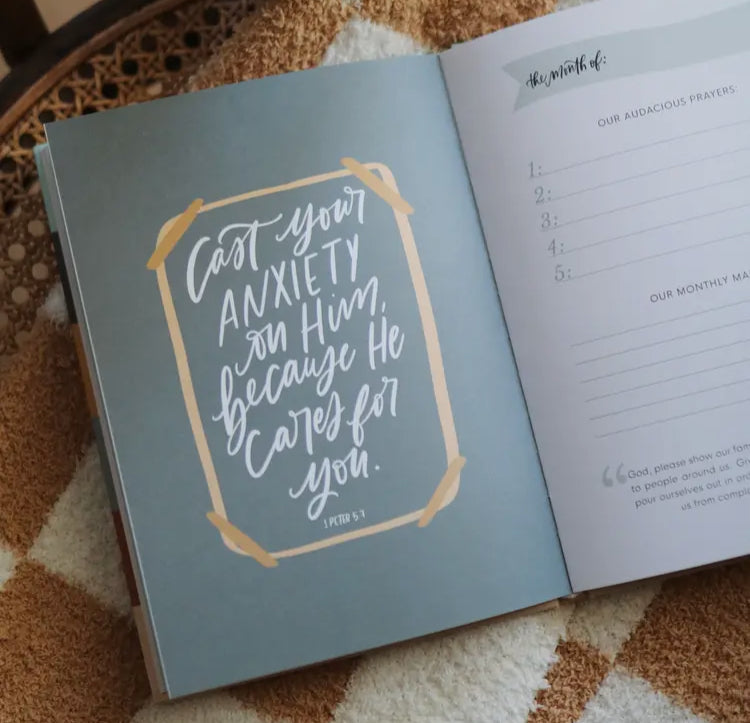 Cast your
ANXIETY
on Him,
because He
cares for
you.
1 PETER 5:7
the month of:
OUR AUDACIOUS PRAYERS:
1:
2:
3:
4:
5:
OUR MONTHLY
“God, please show our
to people around us.
pour ourselves out in
us from